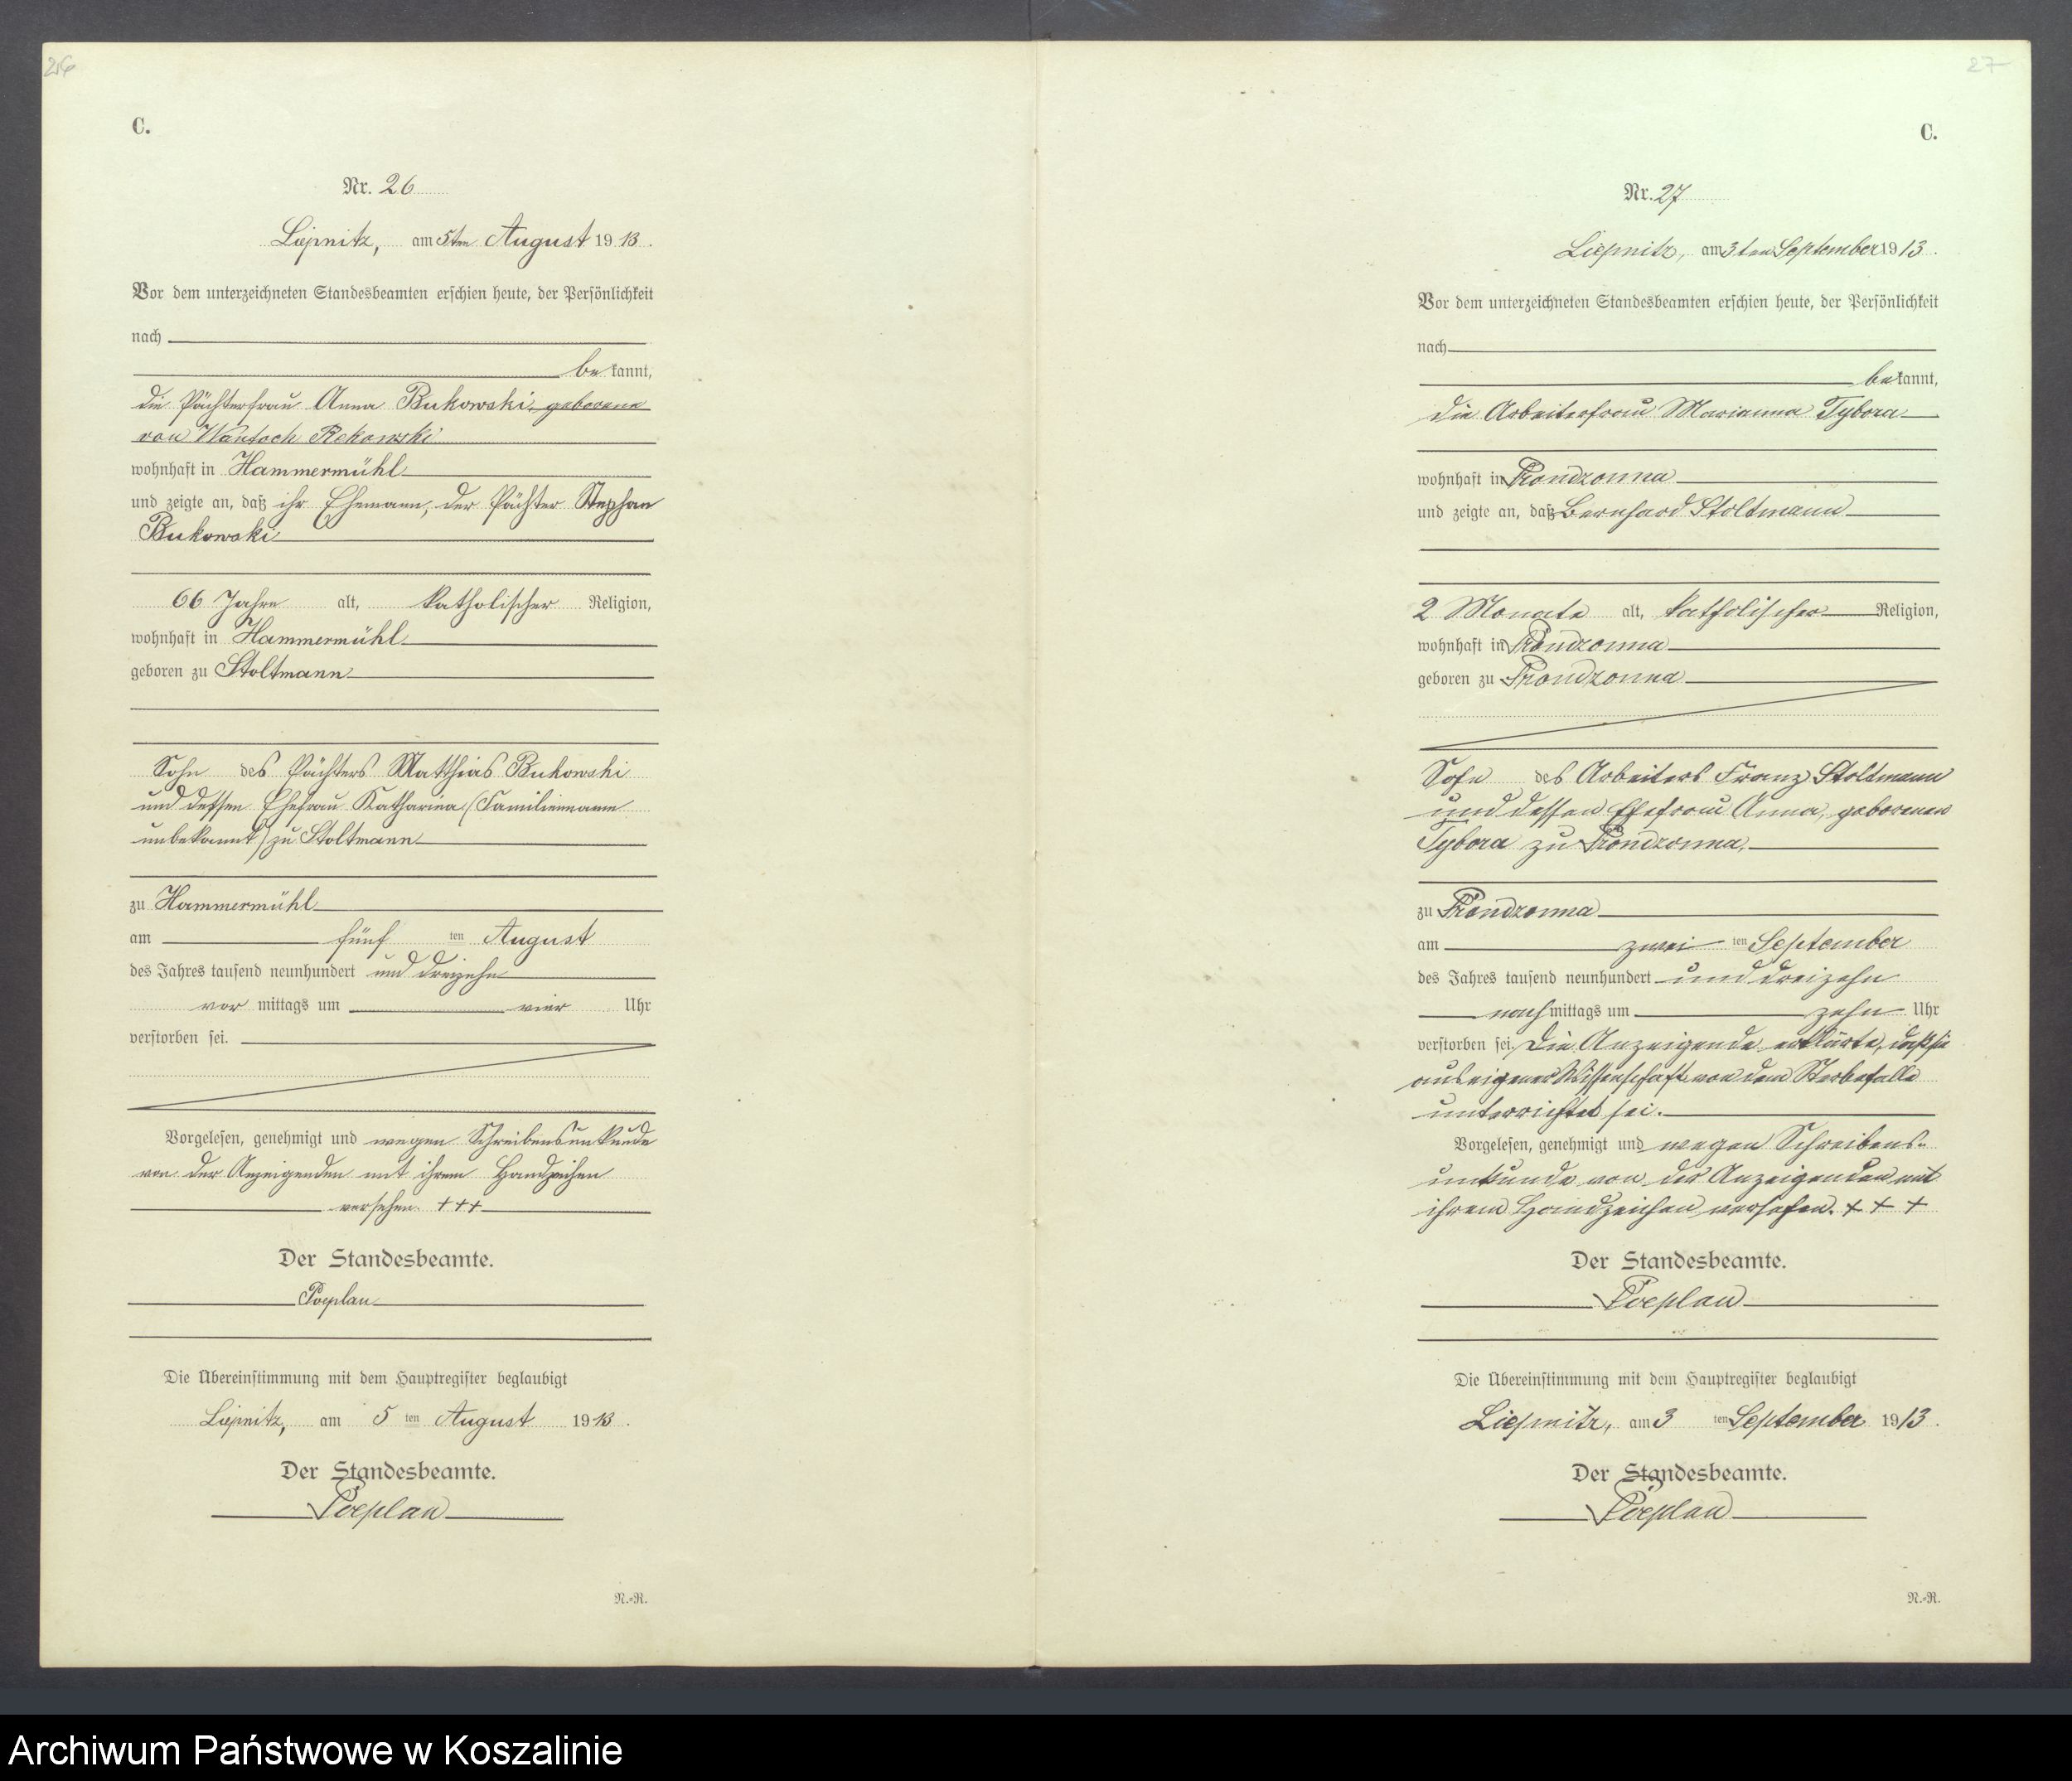 26
C.
Nr. 26
Liepnitz, am 5ten August 1913.
Vor dem unterzeichneten Standesbeamten erschien heute, der Persönlichkeit
nach
bekannt,
die Pächterfrau Anna Bukowski, geborene
von Wantoch Rekowski
wohnhaft in Hammermühl
und zeigte an, daß ihr Ehemann, der Pächter Stephan
Bukowski
66 Jahre alt, katholischer Religion,
wohnhaft in Hammermühl
geboren zu Stoltmann
Sohn des Pächters Matthias Bukowski
und dessen Ehefrau Katharina (Familienname
unbekannt) zu Stoltmann
zu Hammermühl
am fünf ten August
des Jahres tausend neunhundert und dreizehn
vor mittags um vier Uhr
verstorben sei.
Vorgelesen, genehmigt und wegen Schreibensunkunde
von der Anzeigenden mit ihrem Handzeichen
versehen. +++
Der Standesbeamte.
Poeplau
Die Übereinstimmung mit dem Hauptregister beglaubigt
Liepnitz, am 5 ten August 1913.
Der Standesbeamte.
Poeplau
N.-R.
27
C.
Nr. 27
Liepnitz, am 3ten September 1913.
Vor dem unterzeichneten Standesbeamten erschien heute, der Persönlichkeit
nach
bekannt,
die Arbeiterfrau Marianna Tybora
wohnhaft in Prondzonna
und zeigte an, daß Bernhard Stoltmann
2 Monate alt, katholischer Religion,
wohnhaft in Prondzonna
geboren zu Prondzonna
Sohn des Arbeiters Franz Stoltmann
und dessen Ehefrau Anna, geborenen
Tybora zu Prondzonna,
zu Prondzonna
am zwei ten September
des Jahres tausend neunhundert und dreizehn
nach mittags um zehn Uhr
verstorben sei. Die Anzeigende erklärte, daß sie
aus eigener Wissenschaft von dem Sterbefalle
unterrichtet sei.
Vorgelesen, genehmigt und wegen Schreibens-
unkunde von der Anzeigenden mit
ihrem Handzeichen versehen. + + +
Der Standesbeamte.
Poeplau
Die Übereinstimmung mit dem Hauptregister beglaubigt
Liepnitz, am 3 ten September 1913.
Der Standesbeamte.
Poeplau
N.-R.
Archiwum Państwowe w Koszalinie